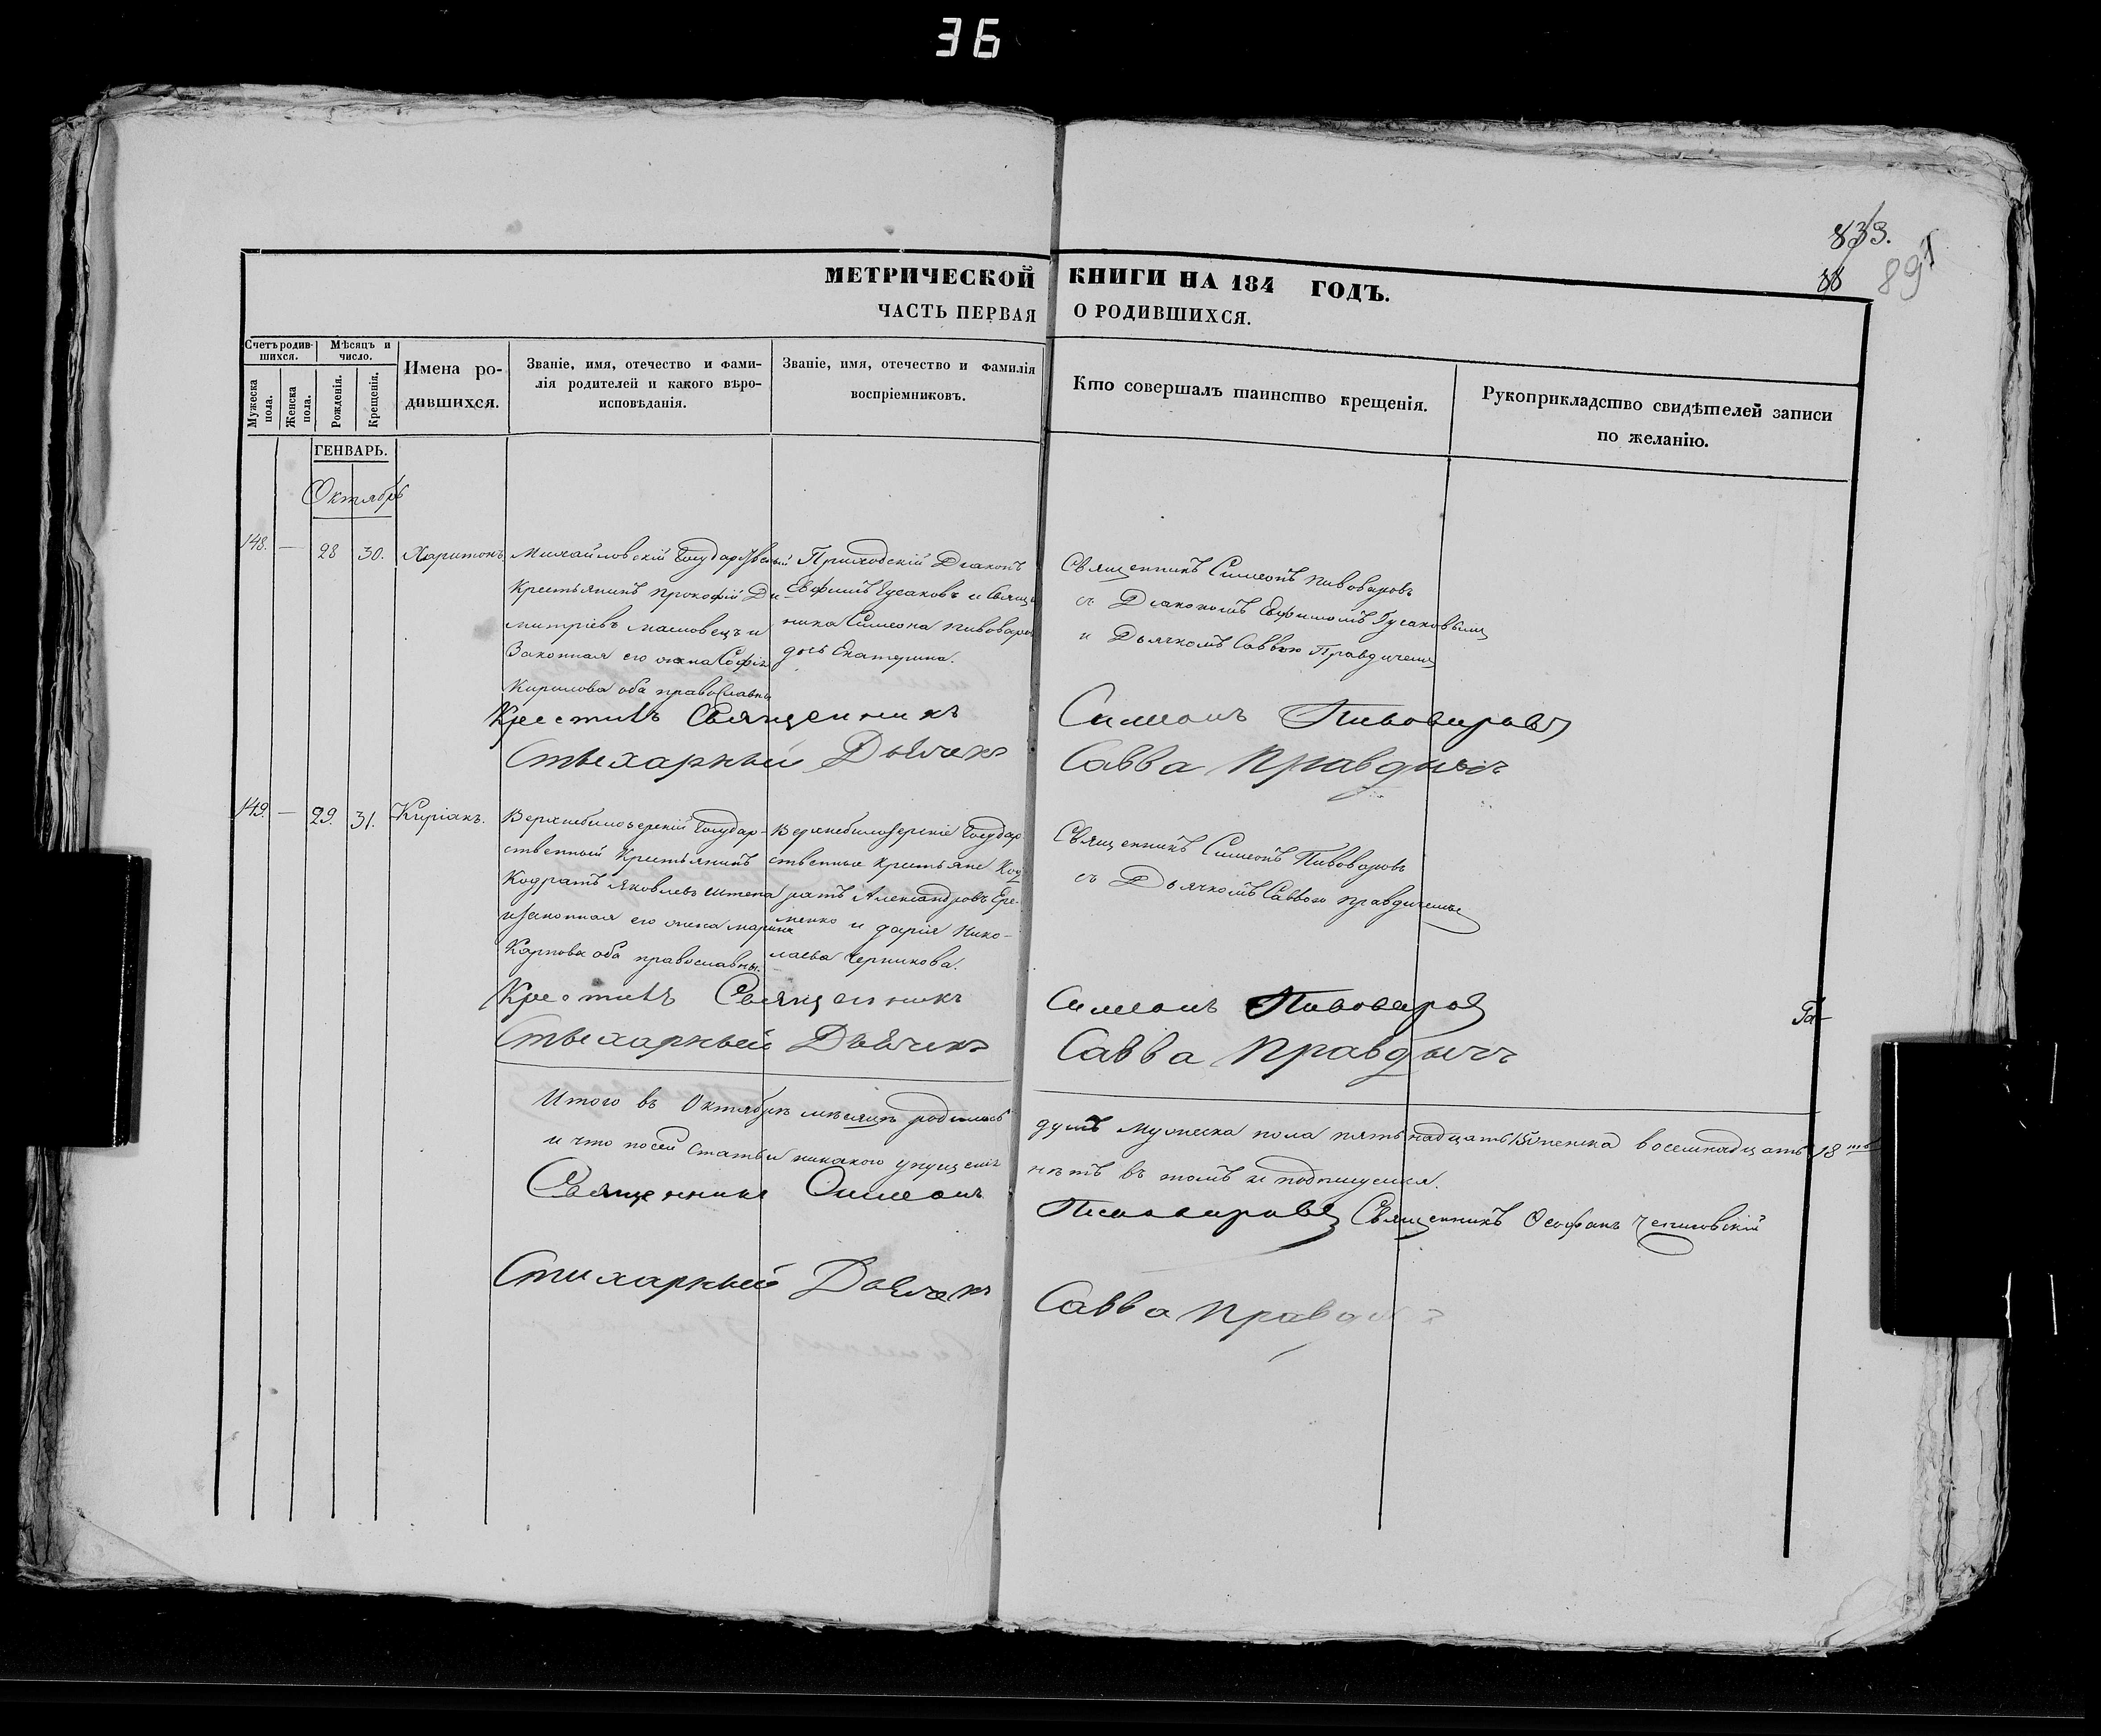 36
833.
88 891
МЕТРИЧЕСКОЙ КНИГИ НА 184 ГОДЪ.
ЧАСТЬ ПЕРВАЯ О РОДИВШИХСЯ.
Счетъ родив-
шихся.
Мѣсяцъ и
число.
Мужеска
пола.
Женска
пола.
Рожденія.
Крещенія.
Имена ро-
дившихся.
Званіе, имя, отечество и фами-
лія родителей и какого вѣро-
исповѣданія.
Званіе, имя, отечество и фамилія
воспріемниковъ.
Кто совершалъ таинство крещенія.
Рукоприкладство свидѣтелей записи
по желанію.
ГЕНВАРЬ.
Октябрь
148. — 28 30. Харитонъ
Михайловскій Государственный
Крестьянинъ Прокофій Ди-
митріевъ Масловецъ и
Законная его жена Софія
Кирилова оба православны
Приходскій Діаконъ
Евфимъ Гусаковъ и Свяще
ника Симеона Пивоваров
дочь Екатерина.
Священникъ Симеонъ Пивоваровъ
съ Діакономъ Евфимомъ Гусаковымъ
и Дьячкомъ Саввою Правдичемъ
Крестилъ Священникъ Симеонъ Пивоваровъ
Стыхарный Дьячекъ Савва Правдычъ
149. — 29. 31. Киріакъ.
Верхнебелозерскій Государ-
ственный Крестьянинъ
Кодратъ Яковлевъ Штепа
и законная его жена Марина
Карпова оба православны.
Верхнебелозерскіе Государ
ственные крестьяне Код
ратъ Александровъ Ере-
менко и Дарія Нико-
лаева Черникова.
Священникъ Симеонъ Пивоваровъ
съ Дьячкомъ Саввою Правдичемъ
Крестилъ Священникъ Симеонъ Пивоваровъ
Стыхарный Дьячекъ Савва Правдычъ
Итого въ Октябрѣ мѣсяцѣ родилось душъ мужеска пола пятьнадцать 15 женска восемнадцать 18
и что посей статьи никакого упущенія нѣтъ въ томъ и подпишуемся.
Священникъ Симеонъ Пивоваровъ Священникъ Ѳеофанъ
Стихарный Дьячекъ Савва